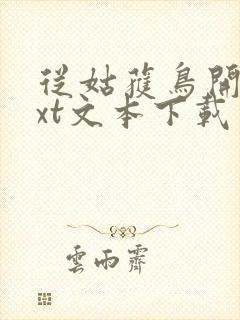 從姑獲鳥開
xt文本下載
雲雨霽